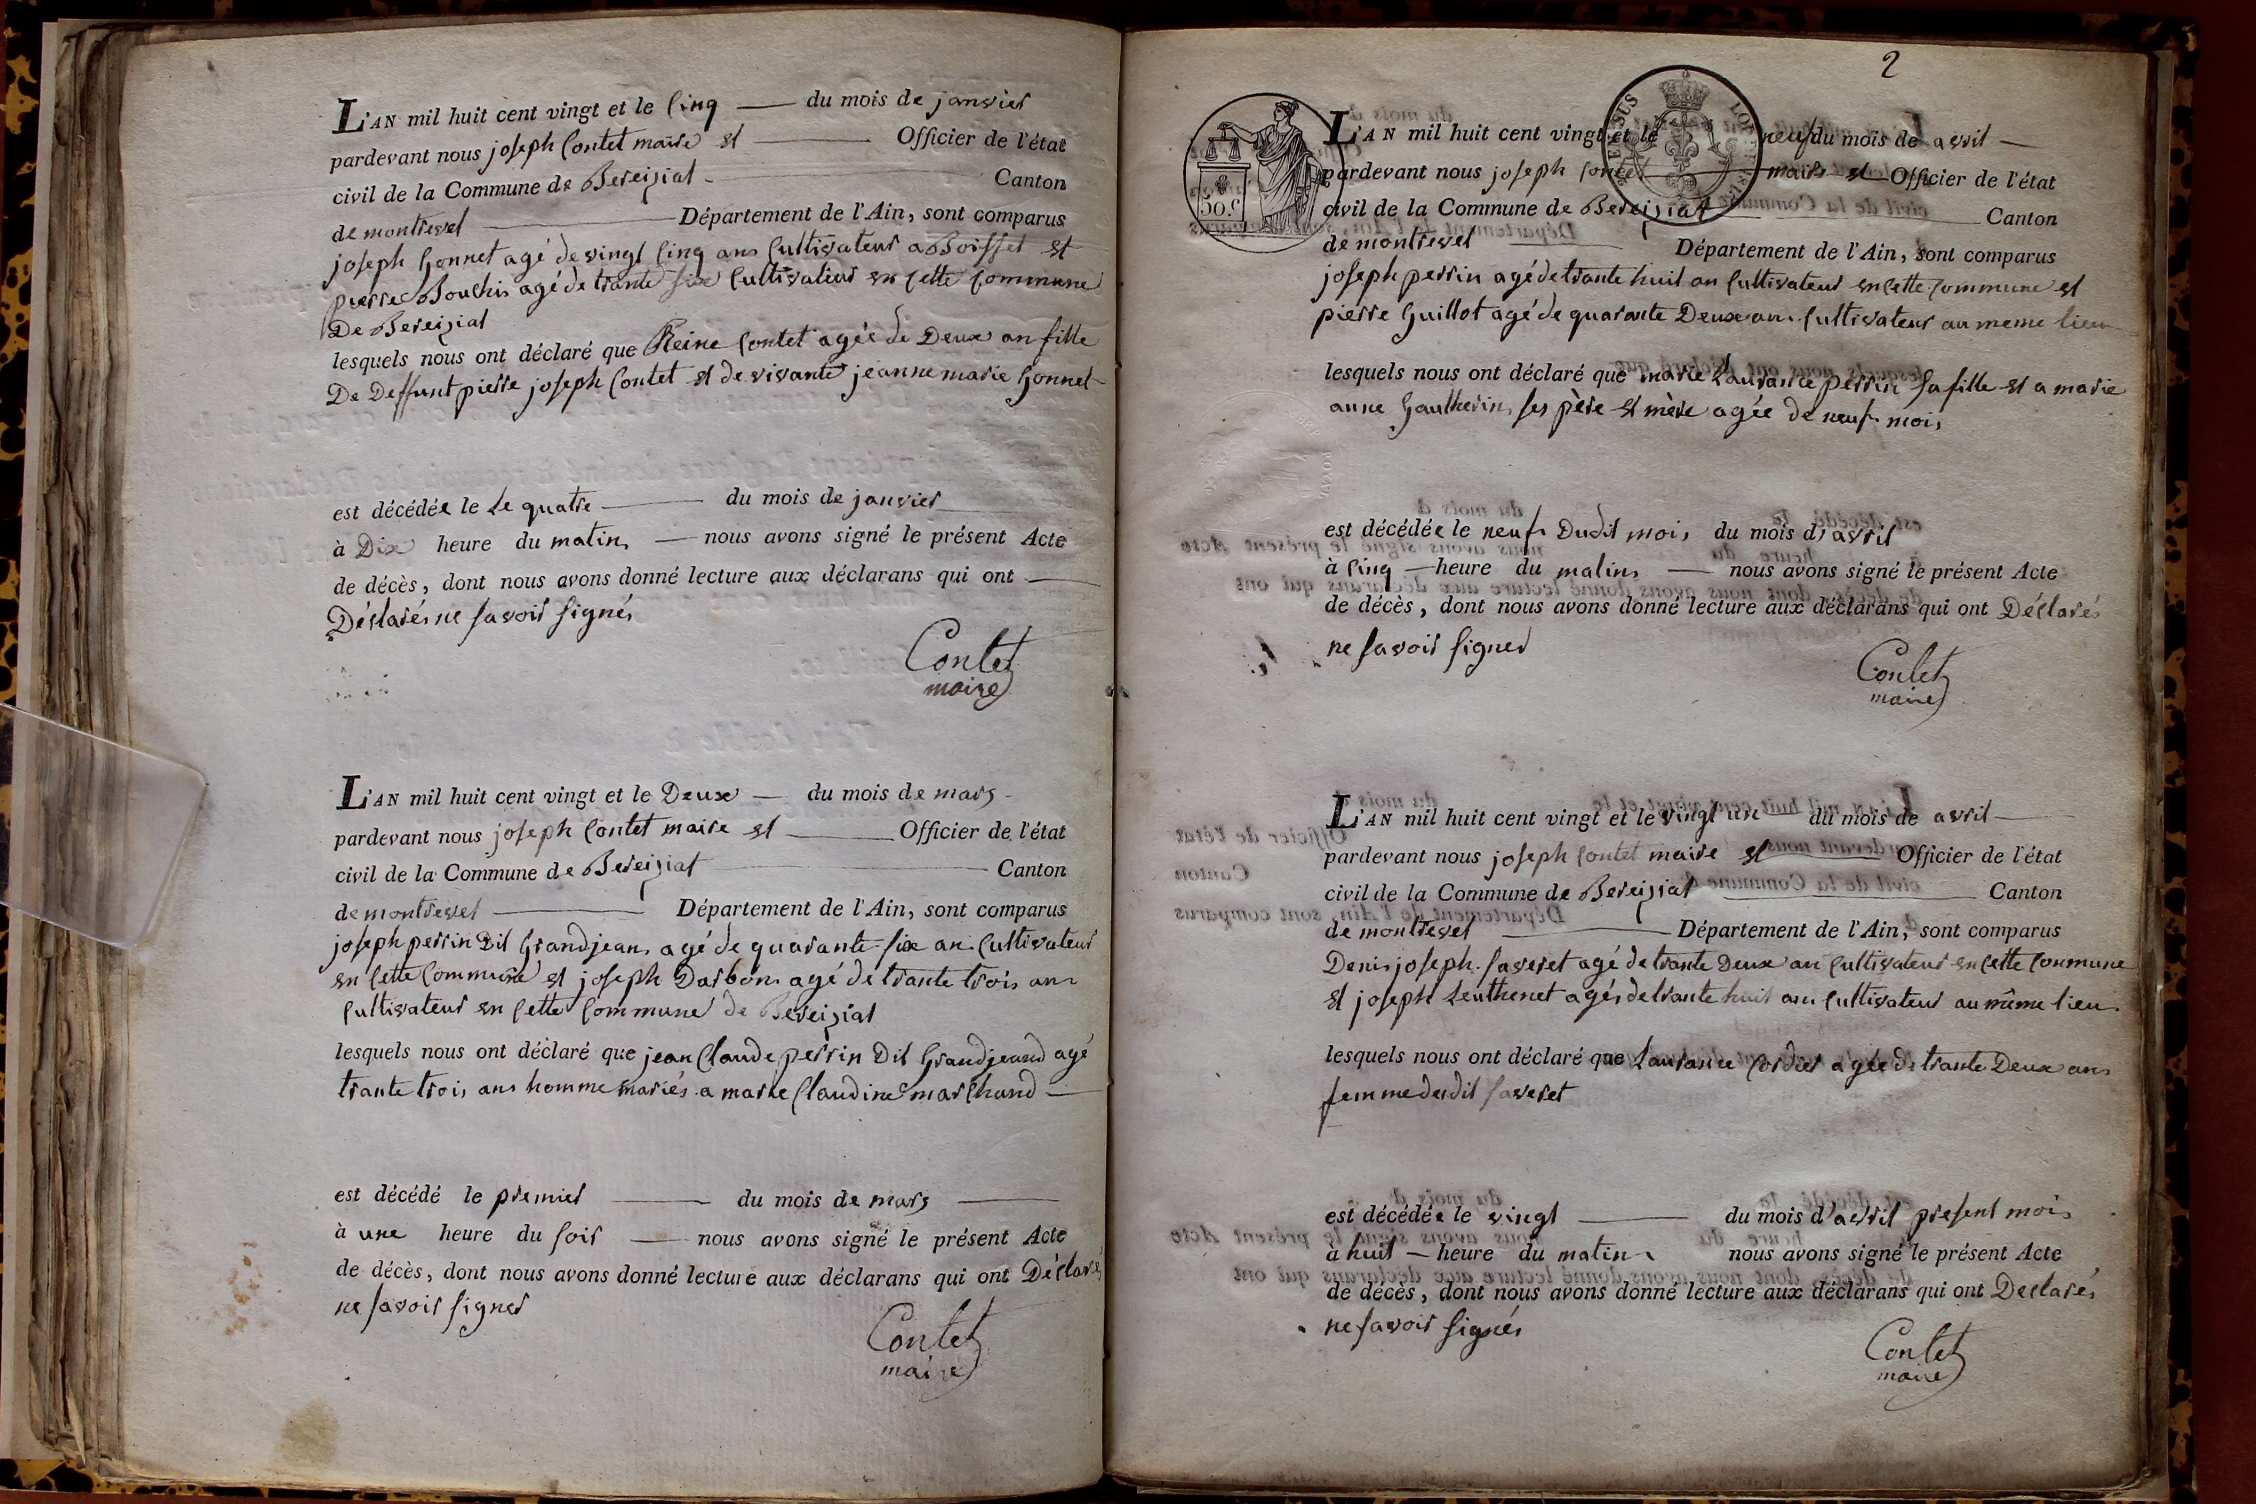 L'AN mil huit cent vingt et le Cinq du mois de janvier
pardevant nous joseph Contet maire et Officier de l'état
civil de la Commune de Bereiziat Canton
de montrevel Département de l'Ain, sont comparus
joseph Gonnet agé de vingt Cinq ans Cultivateur a Boisset et
pierre Bouchis agé de trante six Cultivateur en Cette Commune
De Bereiziat
lesquels nous ont déclaré que Reine Contet agée de Deux an fille
De Deffunt pierre joseph Contet et de vivante jeanne marie Gonnet
est décédée le Le quatre du mois de janvier
à Dix heure du matin nous avons signé le présent Acte
de décès, dont nous avons donné lecture aux déclarans qui ont
Déclarés ne savoir signés
Contet
maire
L'AN mil huit cent vingt et le Deux du mois de mars
pardevant nous joseph Contet maire et Officier de l'état
civil de la Commune de Bereiziat Canton
de montrevel Département de l'Ain, sont comparus
joseph perrin Dit Grandjean agé de quarante-six an Cultivateur
en Cette Commune et joseph Darbon agé de trante trois ans
Cultivateur en Cette Commune de Bereiziat
lesquels nous ont déclaré que jean Claude perrin Dit Grandjeand agé
trante trois ans homme mariés a marie Claudine marchand
est décédé le premier du mois de mars
à une heure du soir nous avons signé le présent Acte
de décès, dont nous avons donné lecture aux déclarans qui ont Déclarés
ne savoir signer
Contet
maire
2
L'AN mil huit cent vingt et le neuf du mois de avril
pardevant nous joseph Contet maire et Officier de l'état
civil de la Commune de Bereiziat Canton
de montrevel Département de l'Ain, sont comparus
joseph perrin agé de trante huit an Cultivateur en Cette Commune et
pierre Guillot agé de quarante Deux an Cultivateur au meme lieu
lesquels nous ont déclaré que marie Laurance perrin sa fille et a marie
anne Gautherin ses père et mère agée de neuf mois
est décédée le neuf Dudit mois du mois d'avril
à Cinq heure du matin nous avons signé le présent Acte
de décès, dont nous avons donné lecture aux déclarans qui ont Déclarés
ne savoir signer
Contet
maire
L'AN mil huit cent vingt et le vingt un du mois de avril
pardevant nous joseph Contet maire et Officier de l'état
civil de la Commune de Bereiziat Canton
de montrevel Département de l'Ain, sont comparus
Denis joseph faveret agé de trante Deux an Cultivateur en Cette Commune
et joseph Leuthenet agés de trante huit ans Cultivateur au même lieu
lesquels nous ont déclaré que Laurance Cordier agée de trante Deux ans
femme dudit faveret
est décédée le vingt du mois d'avril present mois
à huit heure du matin nous avons signé le présent Acte
de décès, dont nous avons donné lecture aux déclarans qui ont Declarés
ne savoir signés
Contet
maire